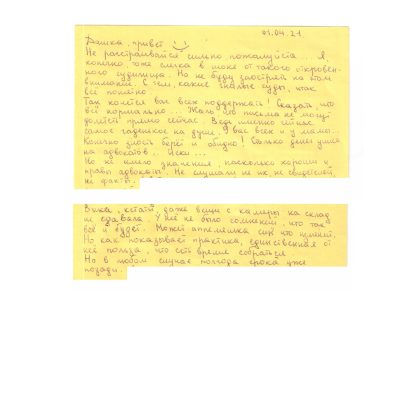 01.04.21
Дашка, привет
Не расстраивайся сильно, пожалуйста... Я,
конечно, тоже слегка в шоке от такого откровен-
ного судилища. Но не буду заострять на этом
внимание. С тем, какие гнилые суды, итак
всё понятно
Так хочется вас всех поддержать! Сказать, что
всё нормально... Жаль, что письма не могут
дойти прямо сейчас. Ведь именно сейчас
самое гаденькое на душе. У вас всех и у мамы...
Конечно злость берёт и обидно! Столько денег ушло
на адвокатов... Иски...
Но не имело значения, насколько хороши и
правы адвокаты. Не слушали ни их, ни свидетелей,
ни факты.
Вика, кстати, даже вещи с камеры на склад
не сдавала. У неё не было сомнений, что так
всё и будет. Может аппеляшка ещё что изменит.
Но как показывает практика, единственная от
неё польза, что есть время собраться.
Но в любом случае полгода срока уже
позади.